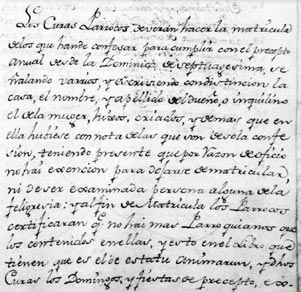 Los Curas Parrocos deverán hacer la matricula
de los que han de confesar para cumplir con el precepto
anual desde la Dominica de septuagesima, se-
ñalando varrios, y escriviendo con distincion la
casa, el nombre, y apellido del dueño, o inquilino
el de la muger, hixos, criados, y demas que en
ella hubiese con nota de las que son de sola confe-
sion, teniendo presente que por razon de oficio
no hai exencion para dejarse de matricular,
ni de ser examinada persona alguna de la
feligresia: y al fin de Matricula los Parrocos
certificaran q.e no hai mas Parroquianos que
los contenidos en ellas, y esto en el Libro que
tienen que es el de estatu animarum, y dhos
Curas los Domingos, y fiestas de precepto, ex-